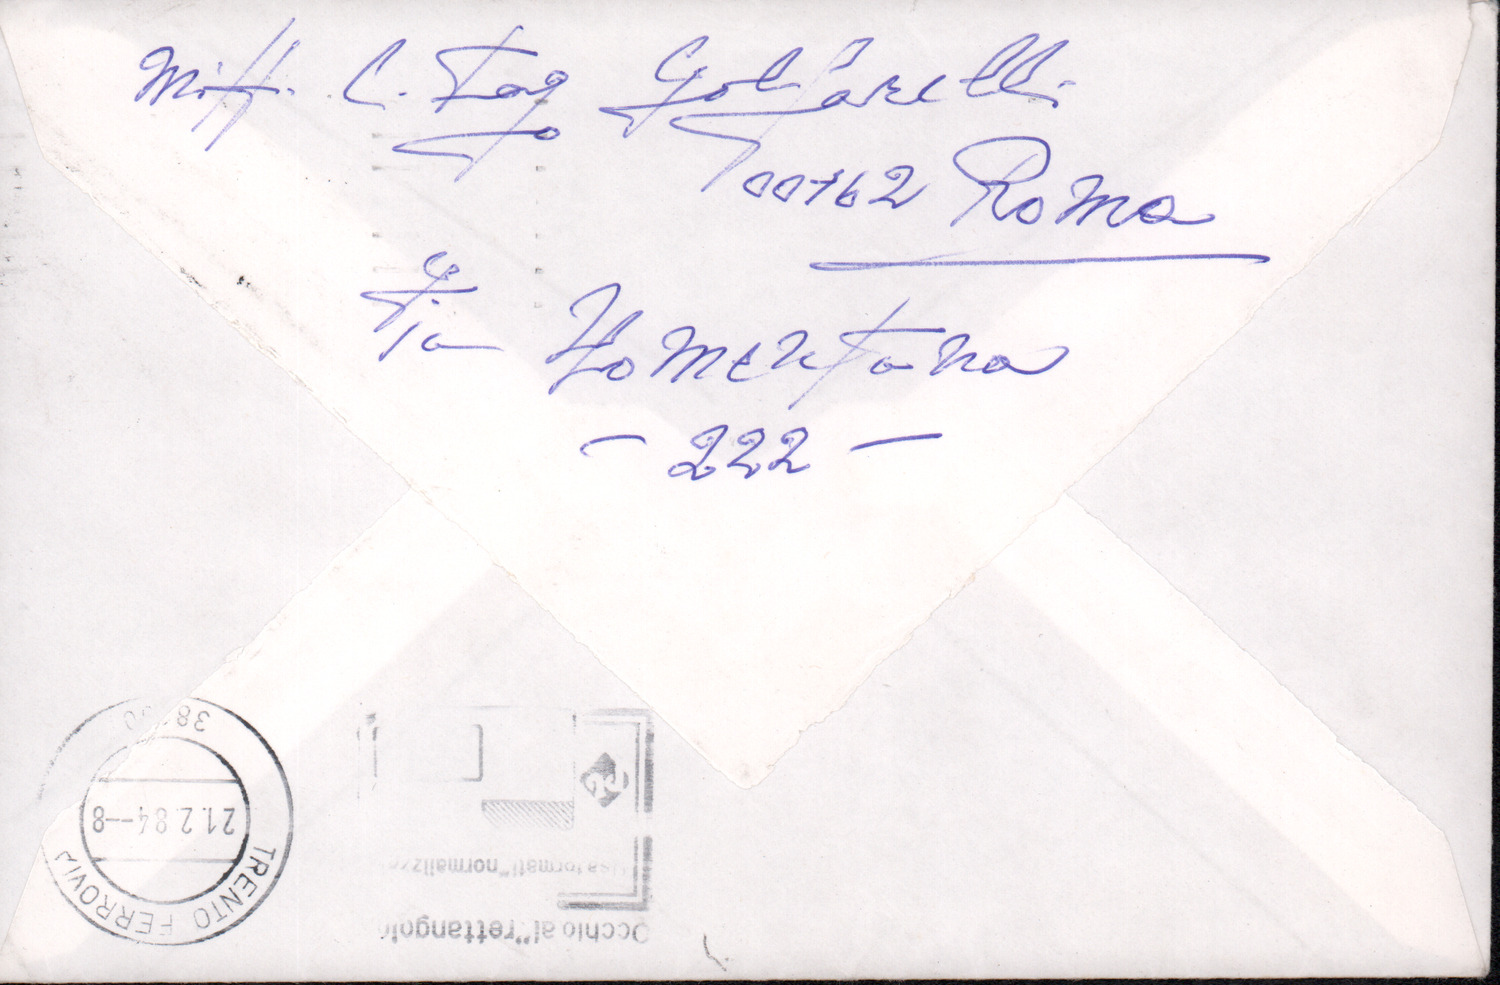 Mitt. C. Tag Golfarelli
00162 Roma
Via Nomentana
- 222 -
38100
21.2.84--8
TRENTO FERROVIA
Usa formati "normalizza
Occhio al "rettangolo